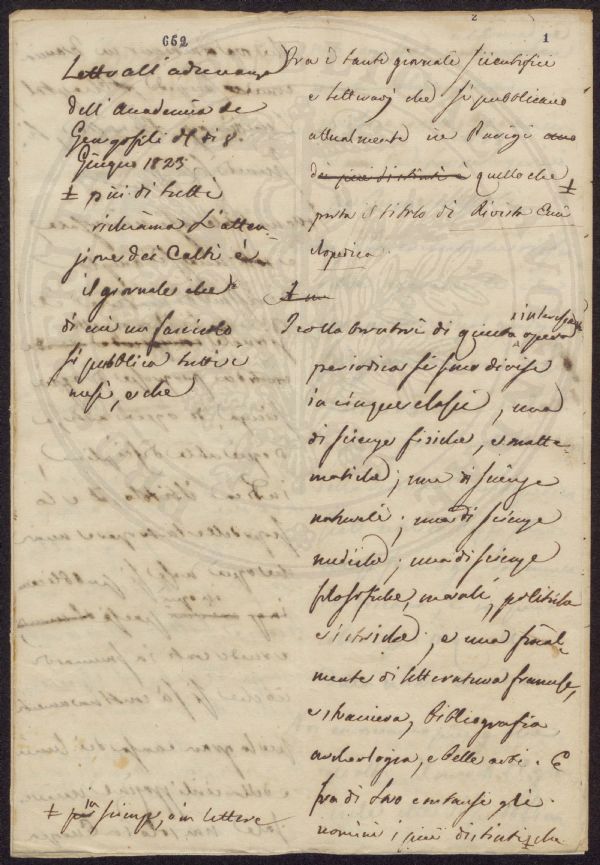 662
2
1
Letto all'adunanza
dell'Accademia de
Georgofili di 8
Giugno 1823
± più di tutti
richiama l'atten-
zione dei Colti è
il giornale che
di cui un fascicolo
si pubblica tutti i
mesi, e che
± in scienze, o in lettere
Fra i tanti giornali scientifici
e letterarj che si pubblicano
attualmente in Parigi uno
dei più distinti è quello che ±
porta il titolo di Rivista Enci
clopedica.
I collaboratori di questa interessante opera
periodica si sono divisi
in cinque classi, una
di scienze fisiche, e matte-
matiche; una di scienze
naturali; una di scienze
mediche; una di scienze
filosofiche, morali, politiche
e istoriche; e una final-
mente di letteratura francese,
e straniera, bibliografia
archeologia, e belle arti. E
fra di loro contansi gli
uomini i più distinti ± che